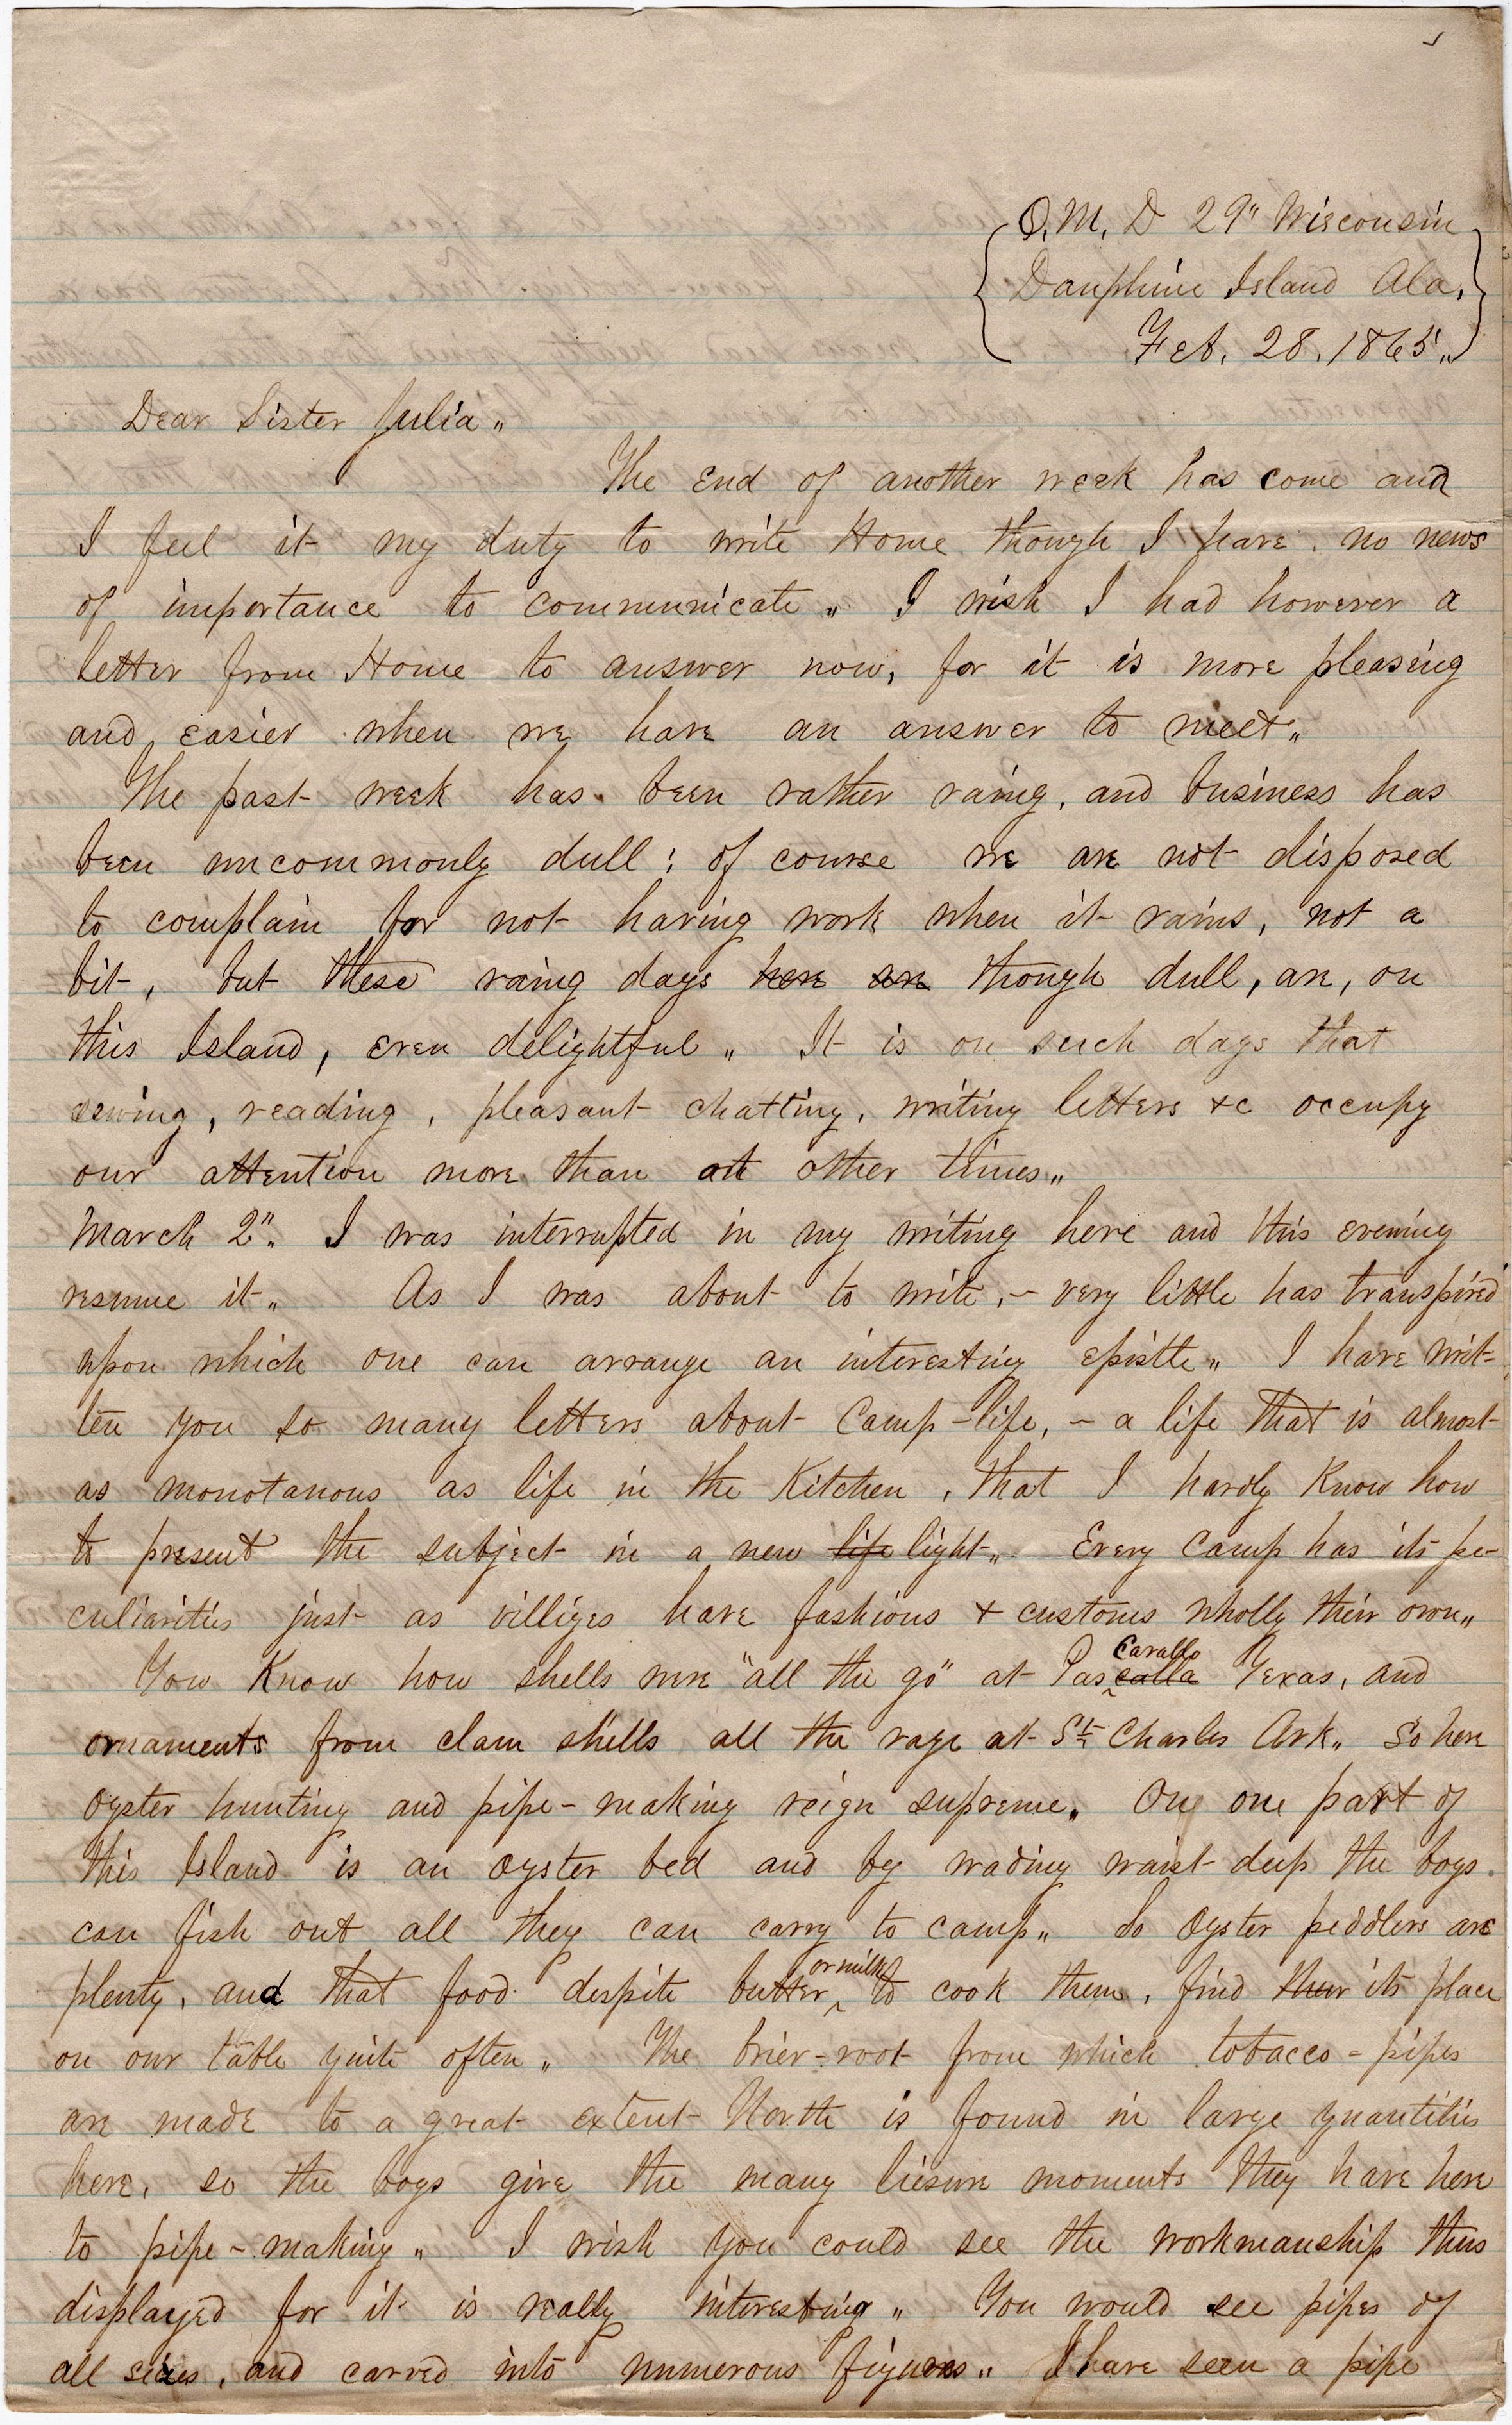 Q. M. D 29" Wisconsin
Dauphine Island Ala,
Feb. 28. 1865 "
Dear Sister Julia "
The end of another week has come and
I feel it my duty to write Home though I have. no news
of importance to communicate " I wish I had however a
letter from Home to answer now, for it is more pleasing
and easier when we have an answer to meet "
The past week has been rather rainy, and business has
been uncommonly dull ; of course we are not disposed
to complain for not having work when it rains, not a
bit, but these rainy days here are though dull, are, on
this Island, even delightful " It is on such days that
sewing, reading, pleasant chatting, writing letters &c occupy
our attention more than at other times "
March 2". I was interrupted in my writing here and this evening
resume it " As I was about to write, - very little has transpired
upon which one can arrange an interesting epistle " I have writ-
ten you so many letters about Camp-life, - a life that is almost
as monotanous as life in the Kitchen, that I hardly know how
to present the subject in a new life light " Every camp has its pe-
culiarities just as villiges have fashions & customs wholly their own "
You know how shells were "all the go" at Pas calla Cavallo Texas, and
ornaments from clam shells all the rage at St Charles Ark " So here
oyster hunting and pipe-making reign supreme " On one part of
this Island is an oyster bed and by wading waist deep the boys
can fish out all they can carry to camp " So oyster peddlers are
plenty, and that food despite butter or milk to cook them, find their its place
on our table quite often " The brier-root from which tobacco-pipes
are made to a great extent North is found in large quantities
here, so the boys give the many liesure moments they have here
to pipe-making " I wish you could see the workmanship thus
displayed for it is really interesting " You would see pipes of
all sizes, and carved into numerous figures " I have seen a pipe